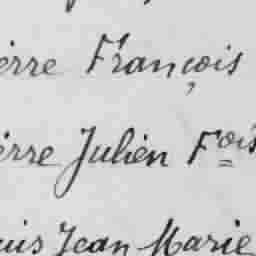 erre François
erre Julien Fois
uis Jean Marie